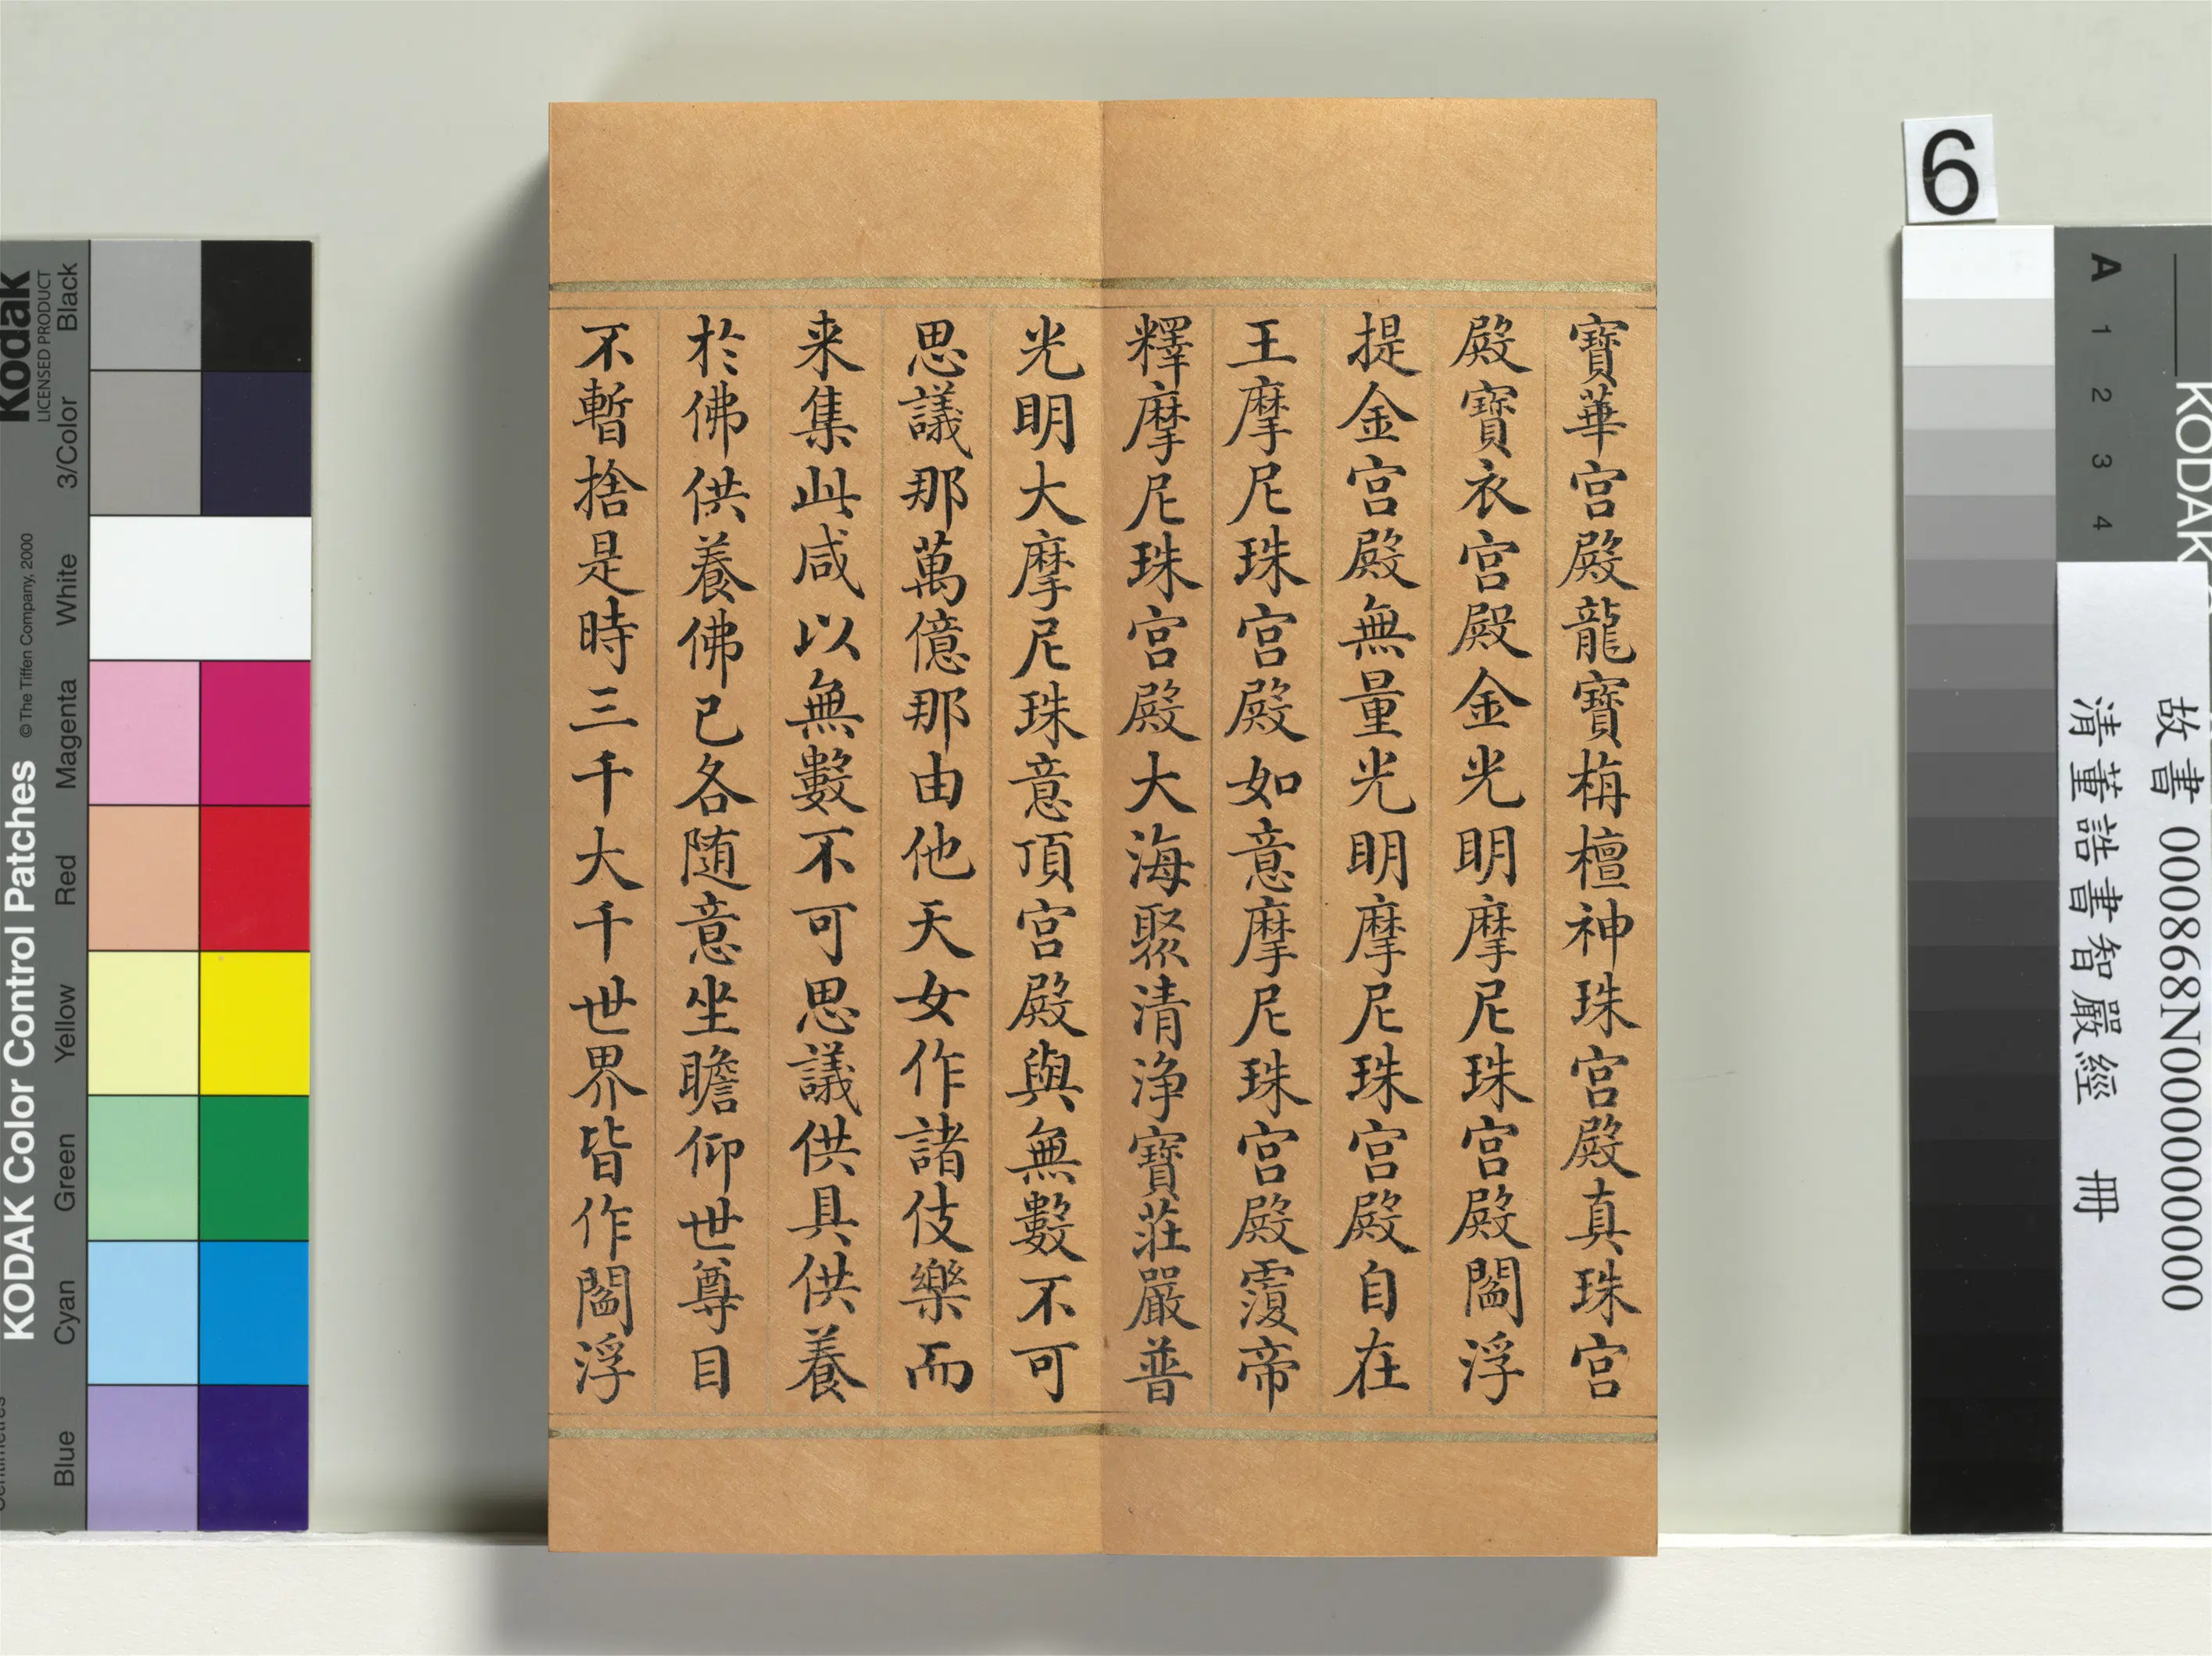 寶華宫殿龍寶栴檀神珠宫殿真珠宫
殿寶衣宫殿金光明摩尼珠宫殿閻浮
提金宫殿無量光明摩尼珠宫殿自在
王摩尼珠宫殿如意摩尼珠宫殿覆帝
釋摩尼珠宫殿大海聚清浄寶莊嚴普
光明大摩尼珠意頂宫殿與無數不可
思議那萬億那由他天女作諸伎樂而
来集此咸以無數不可思議供具供養
於佛供養佛已各随意坐瞻仰世尊目
不暫捨是時三千大千世界皆作閻浮
6
KODAK
A 1 2 3 4
故書 000868N000000000
清董誥書智嚴經 冊
Kodak
LICENSED PRODUCT
KODAK Color Control Patches
©The Tiffen Company, 2000
Blue Cyan Green Yellow Red Magenta White 3/Color Black